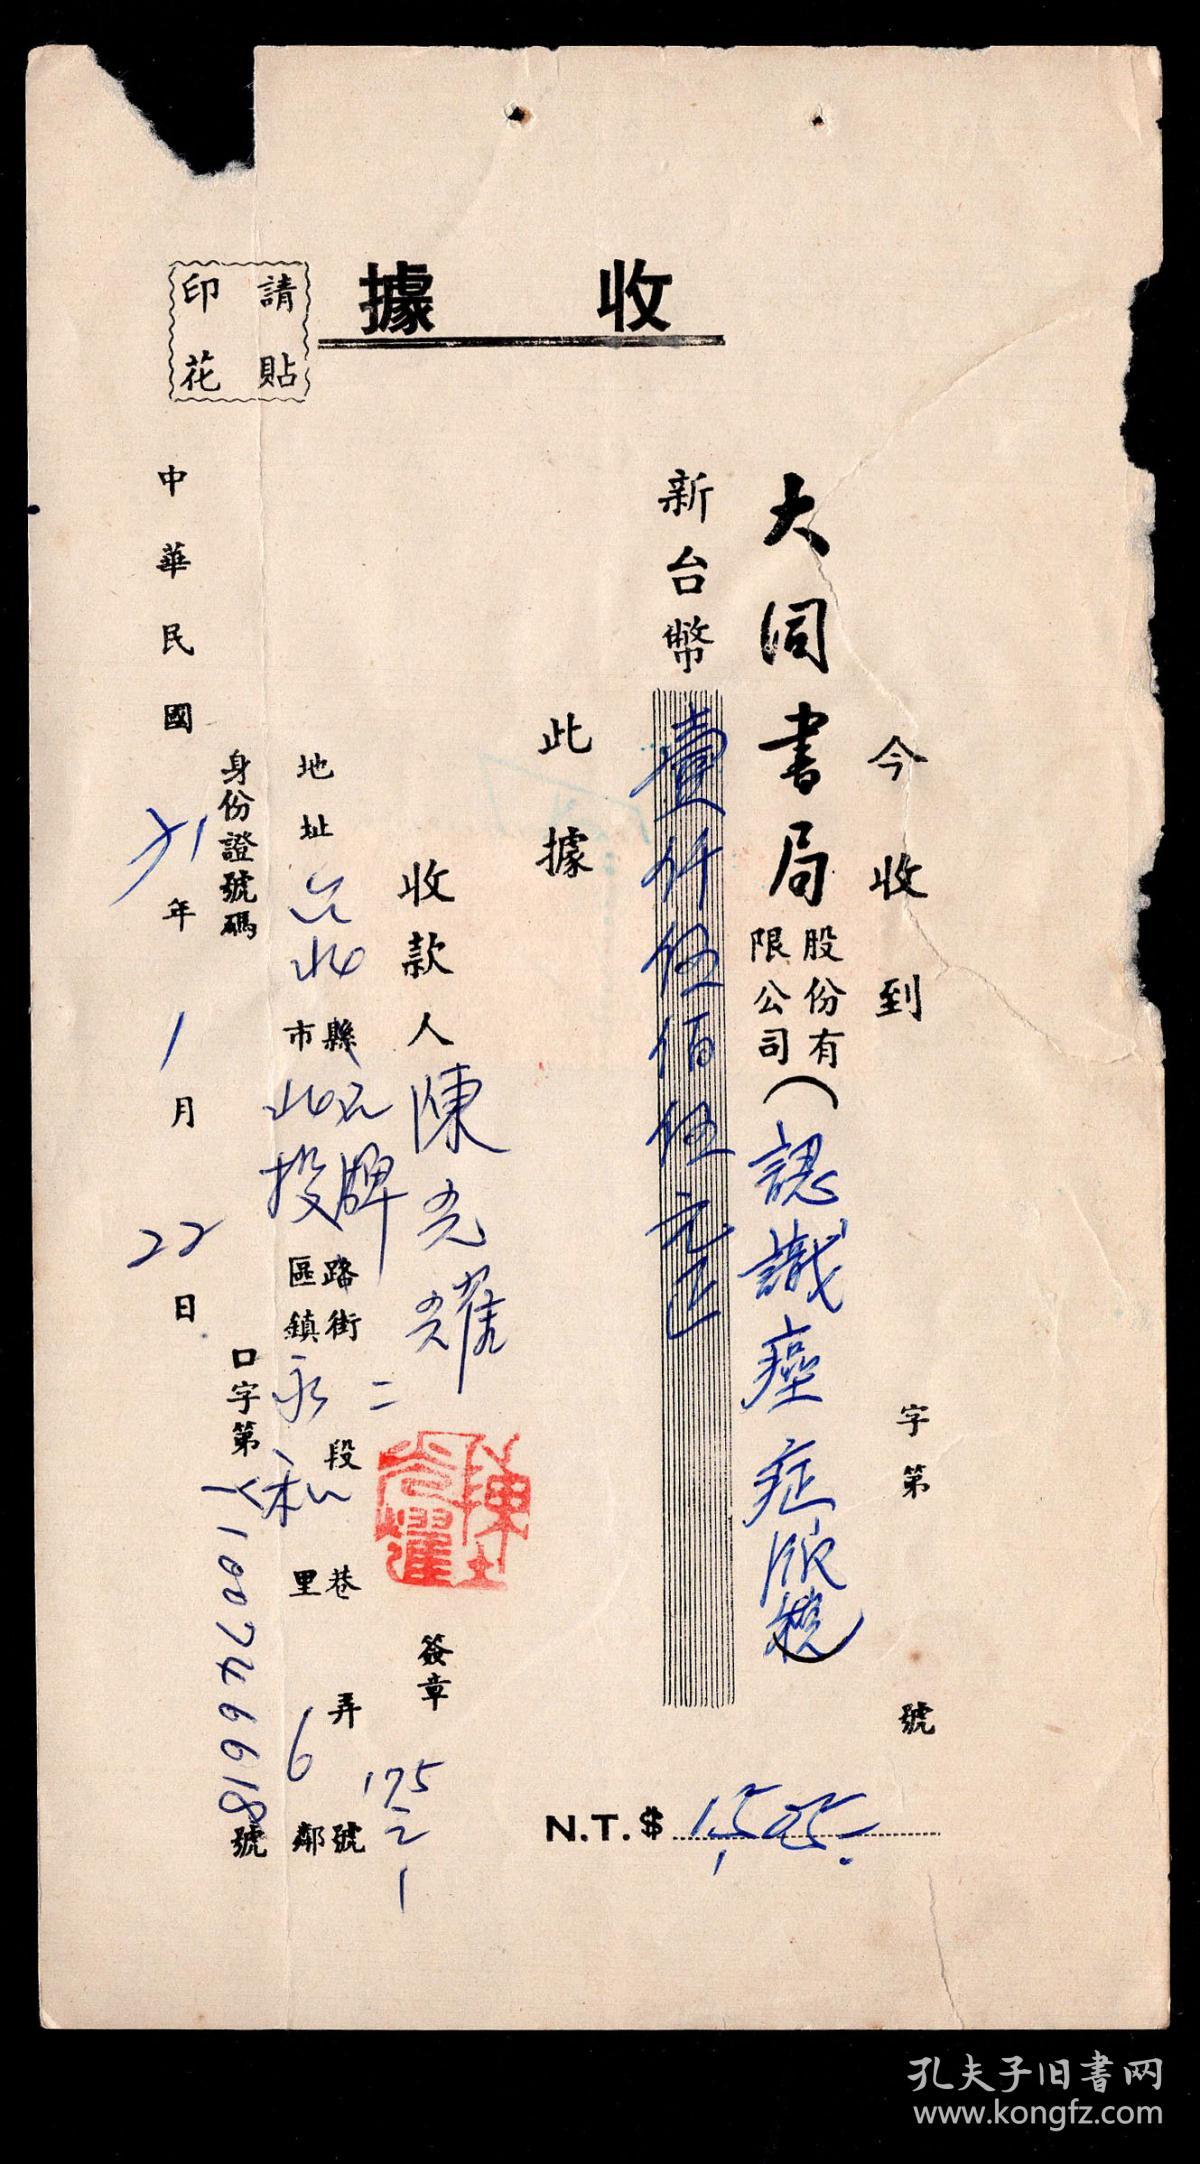 收據
請貼
印花
字第 號
今收到
大同書局股份有限公司(認識癌症版稅)
新台幣壹仟伍佰伍元正
N.T.$ 1,505.-
此據
收款人陳光耀 簽章
陳光耀
地址台北縣市北投區鎮永和里6鄰
石牌路街二段 巷 弄 175 號
2
1
身份證號碼 口字第 100746618號
中華民國 年1月22日
孔夫子旧书网
www.kongfz.com